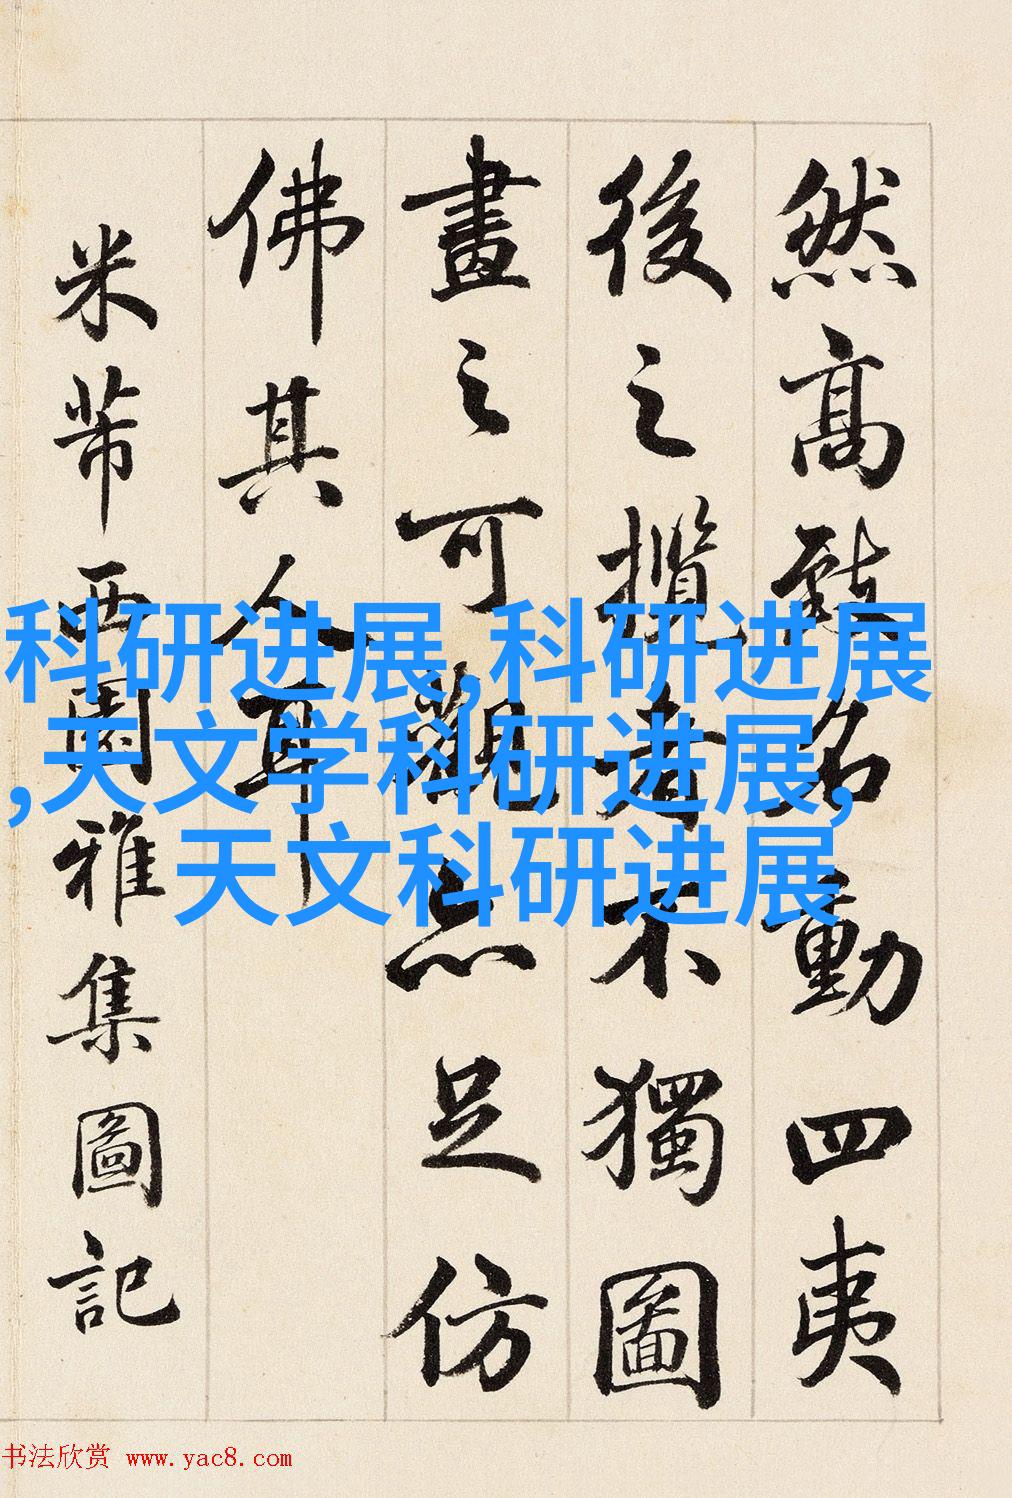 然高致名動四夷
後之攬者不獨圖
畫之可觀亦足仿
佛其人耳
米芾西園雅集圖記
科研进展,科研进展
,天文学科研进展,
天文科研进展
书法欣赏 www.yac8.com